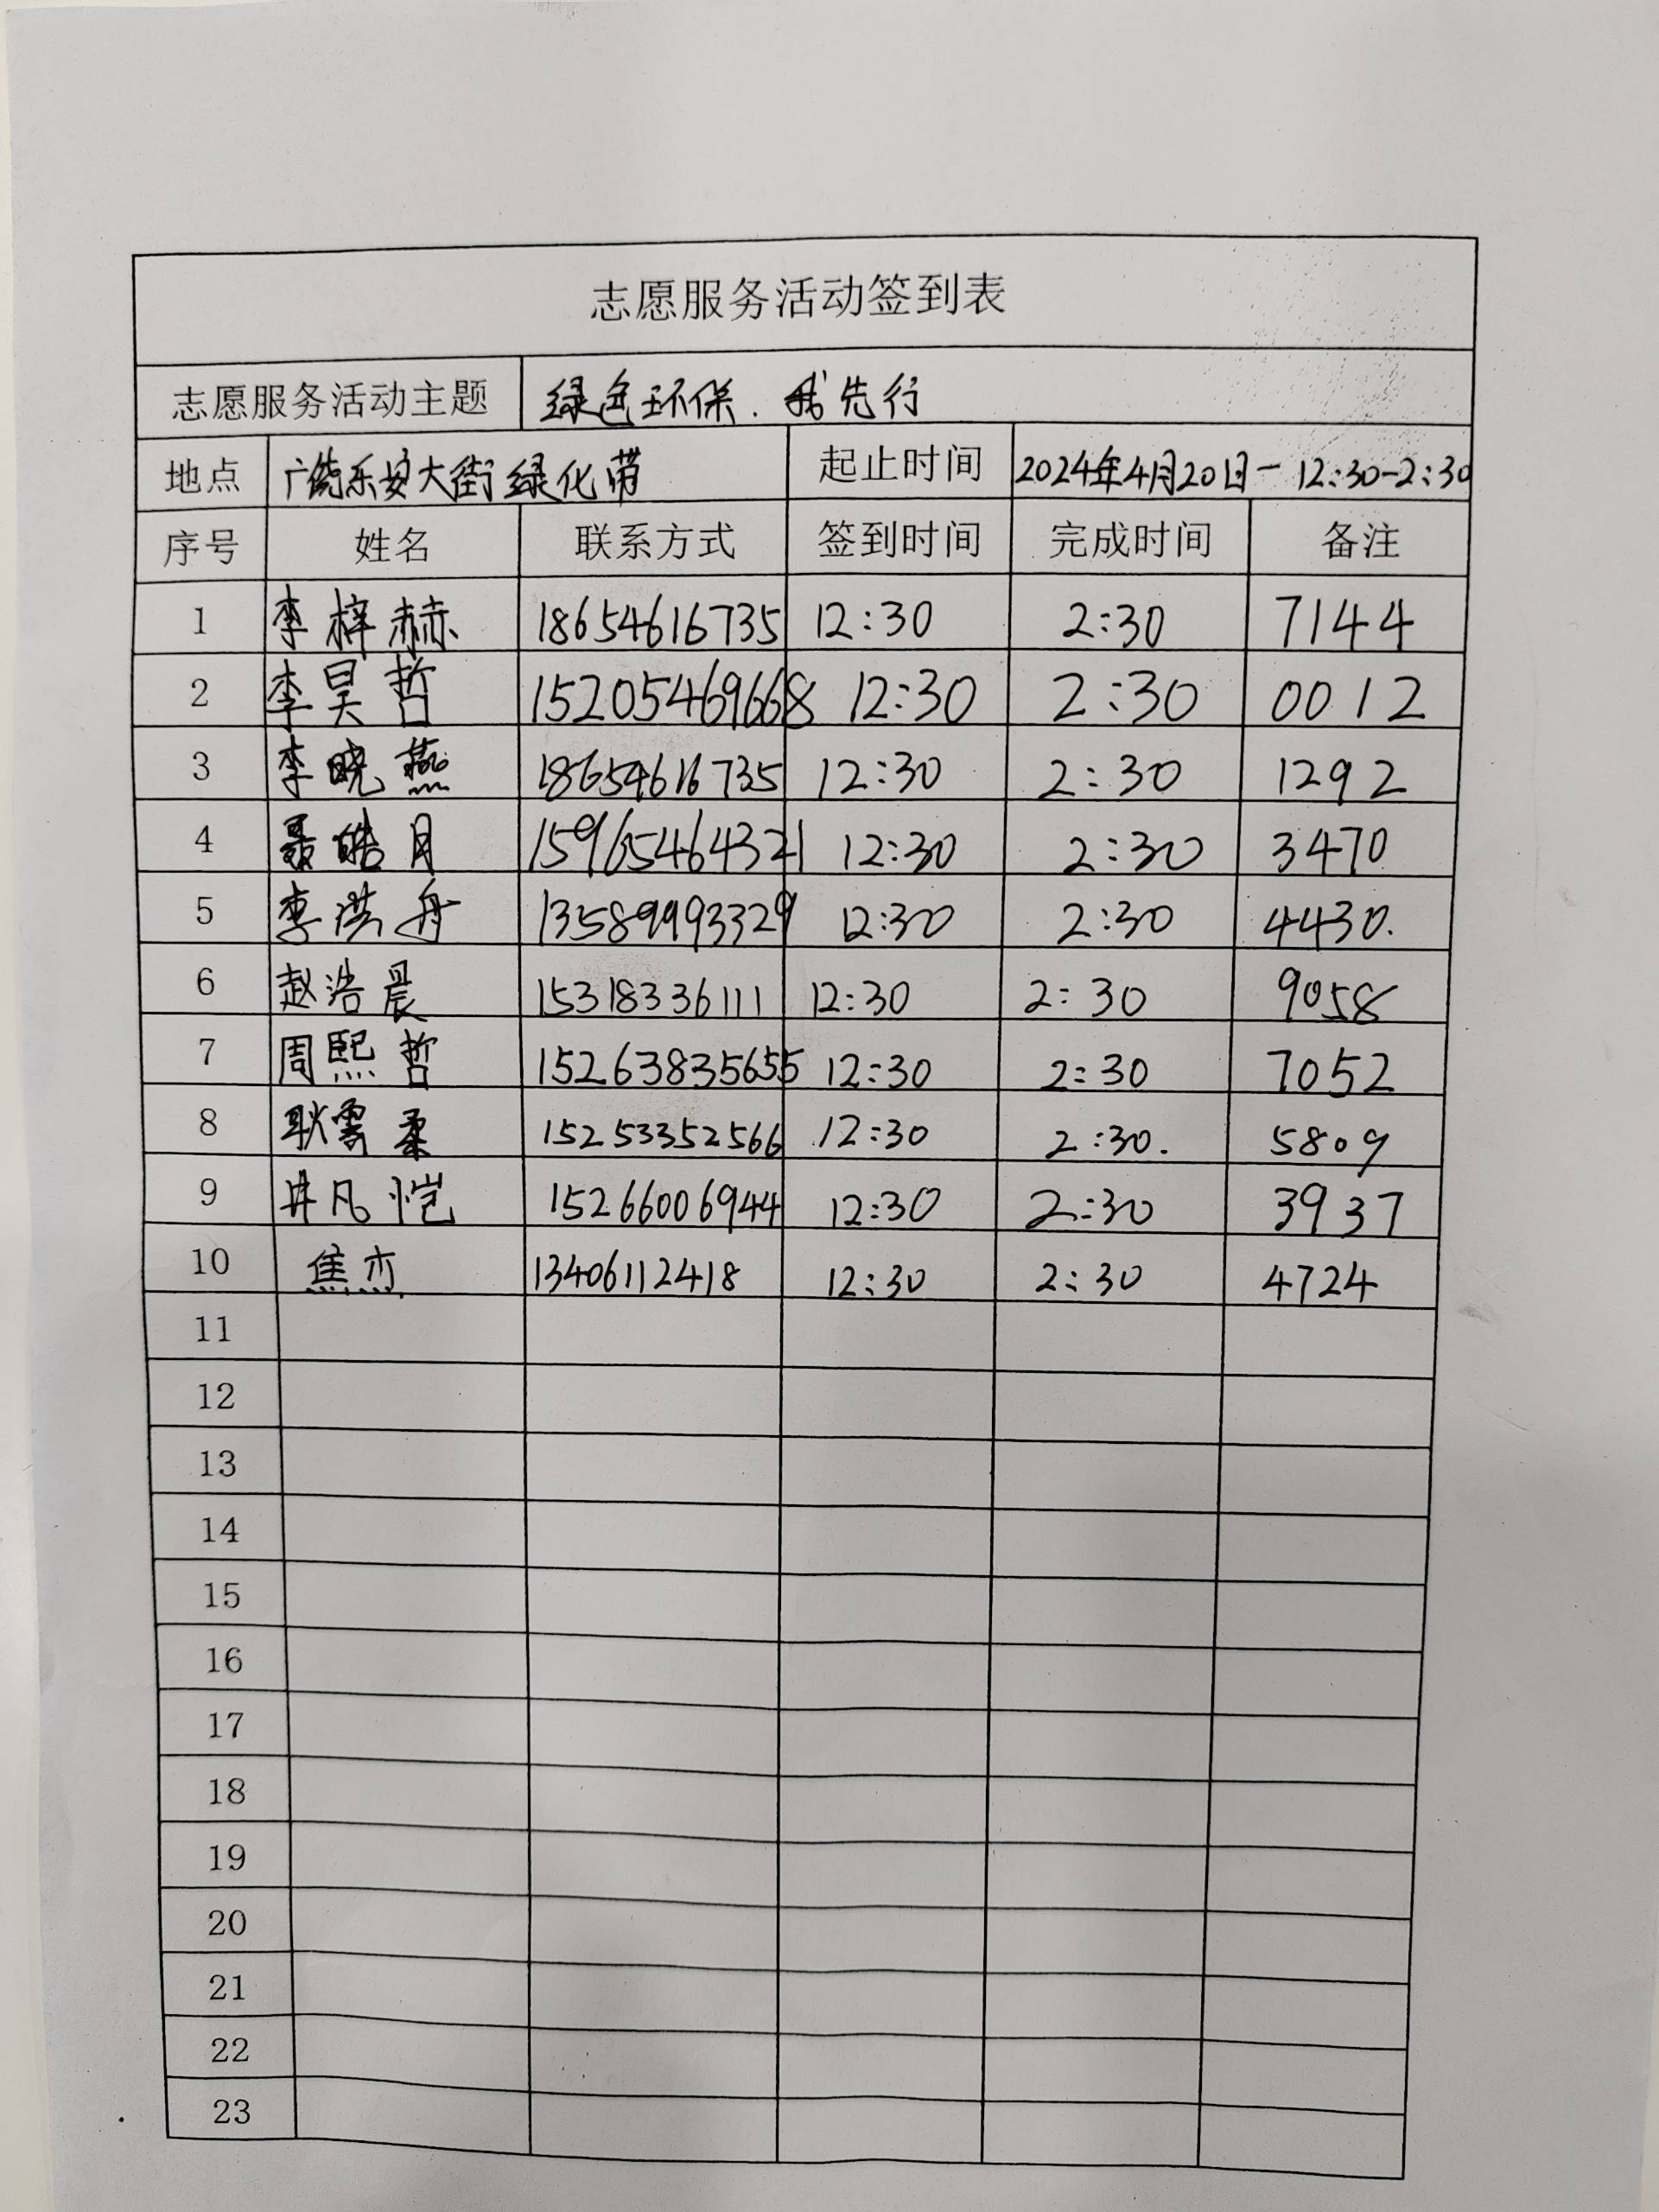 志愿服务活动签到表
志愿服务活动主题 绿色环保.我先行
地点 广饶乐安大街绿化带 起止时间 2024年4月20日一 12:30-2:30
序号 姓名 联系方式 签到时间 完成时间 备注
1 李梓赫 18654616735 12:30 2:30 7144
2 李昊哲 15205469668 12:30 2:30 0012
3 李晓燕 18654616735 12:30 2:30 1292
4 聂皓月 15965464321 12:30 2:30 3470
5 李洪舟 13589993329 12:30 2:30 4430.
6 赵浩晨 15318336111 12:30 2:30 9058
7 周熙哲 15263835655 12:30 2:30 7052
8 耿雲柔 15253352566 12:30 2:30. 5809
9 井凡恺 15266006944 12:30 2:30 3937
10 焦杰 13406112418 12:30 2:30 4724
11
12
13
14
15
16
17
18
19
20
21
22
23